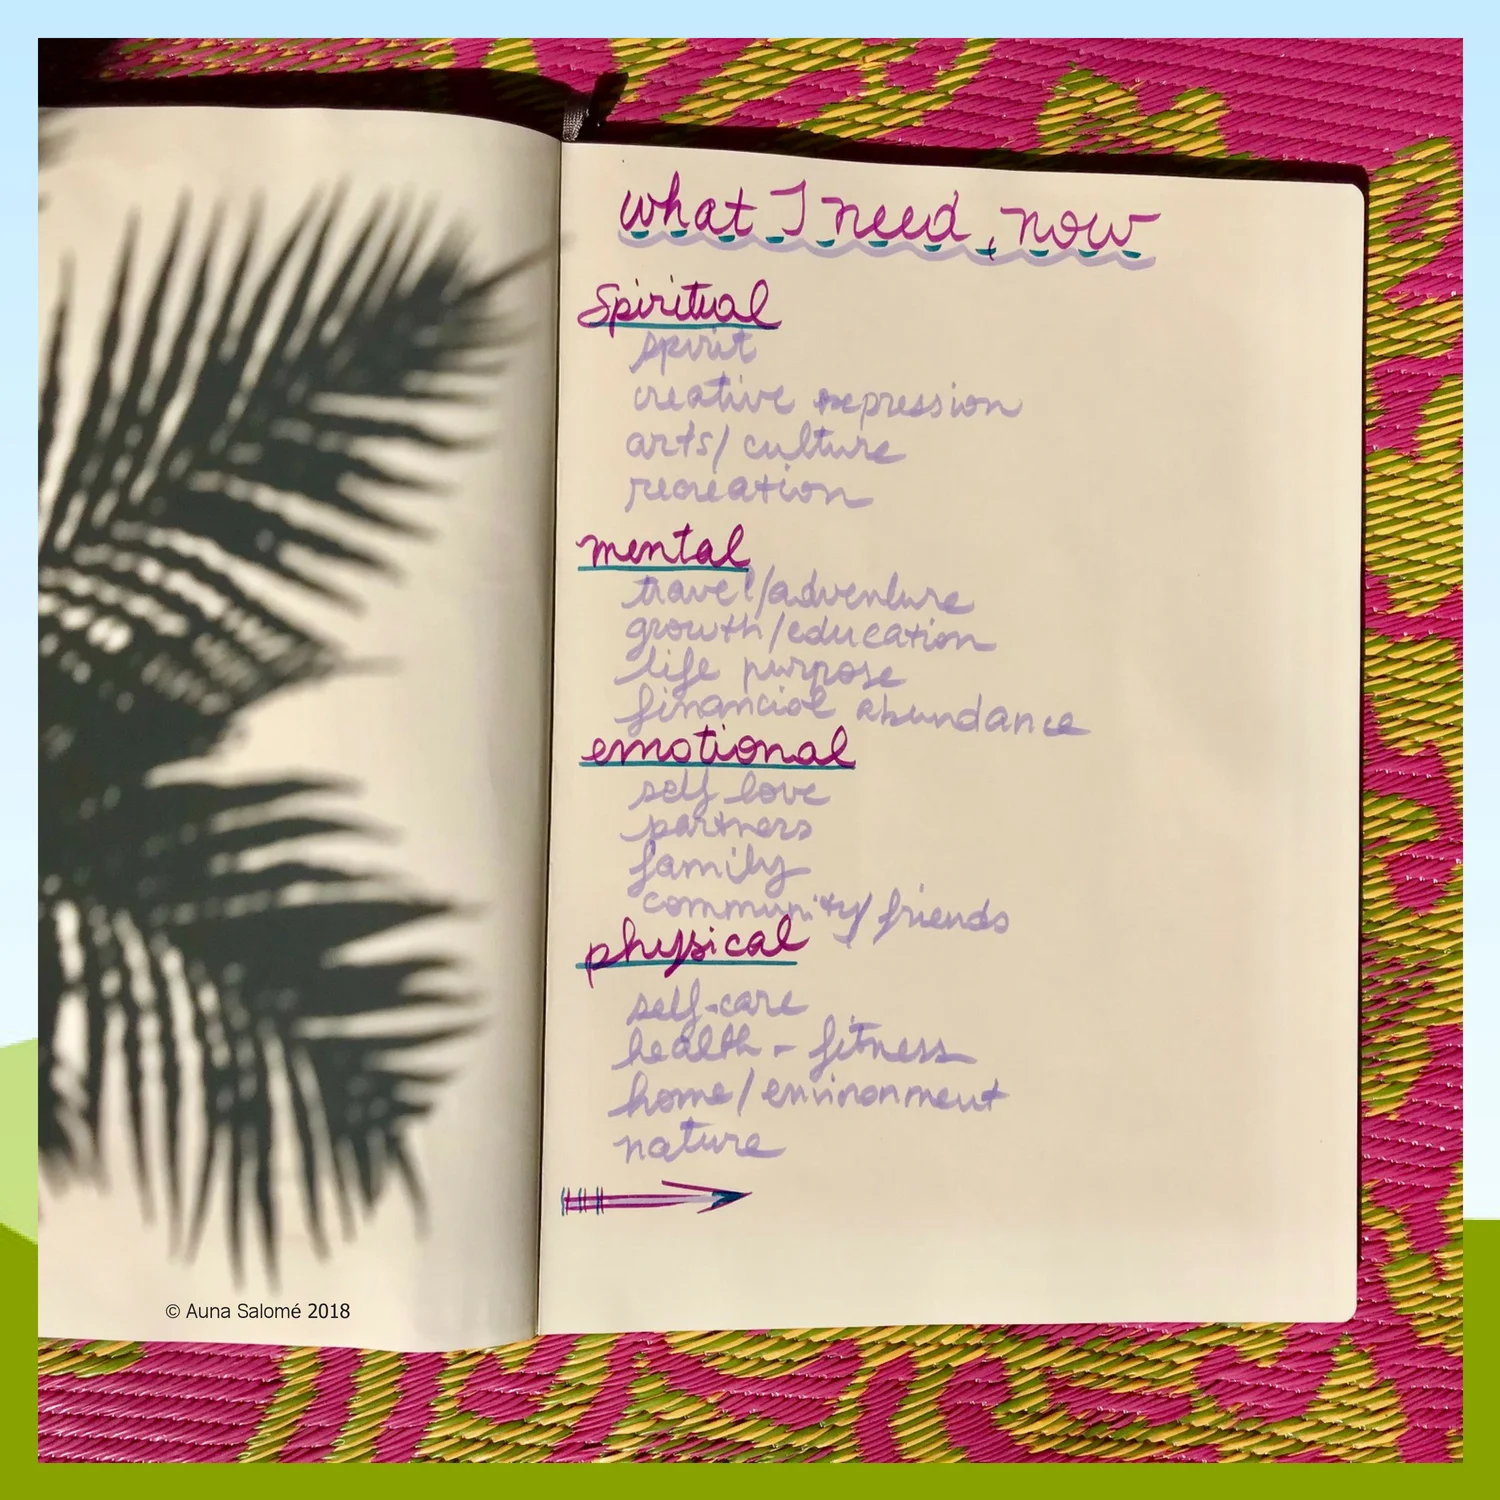 what I need, now
Spiritual
spirit
creative expression
arts/culture
recreation
mental
travel/adventure
growth/education
life purpose
financial abundance
emotional
self love
partners
family
community/friends
physical
self-care
health - fitness
home/environment
nature
© Auna Salomé 2018